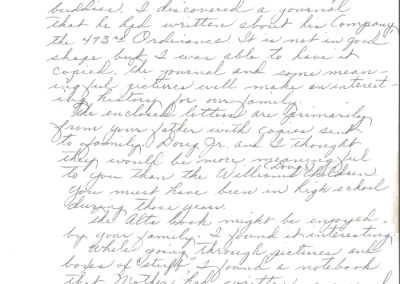 buddies. I discovered a journal
that he had written about his Company
the 473rd Ordinance. It is not in good
shape but I was able to have it
copied. The journal and some mean-
ingful pictures will make an interest-
ing history for our family.
The enclosed letters are primarily
from your father with copies sent
to family. Doug Jr. and I thought
they would be more meaningful
to you than the Williams (Doug's) children.
You must have been in high school
during those years.
The Alta book might be enjoyed
by your family. I found it interesting.
While going through pictures and
boxes of "stuff" I found a notebook
that Mother had written